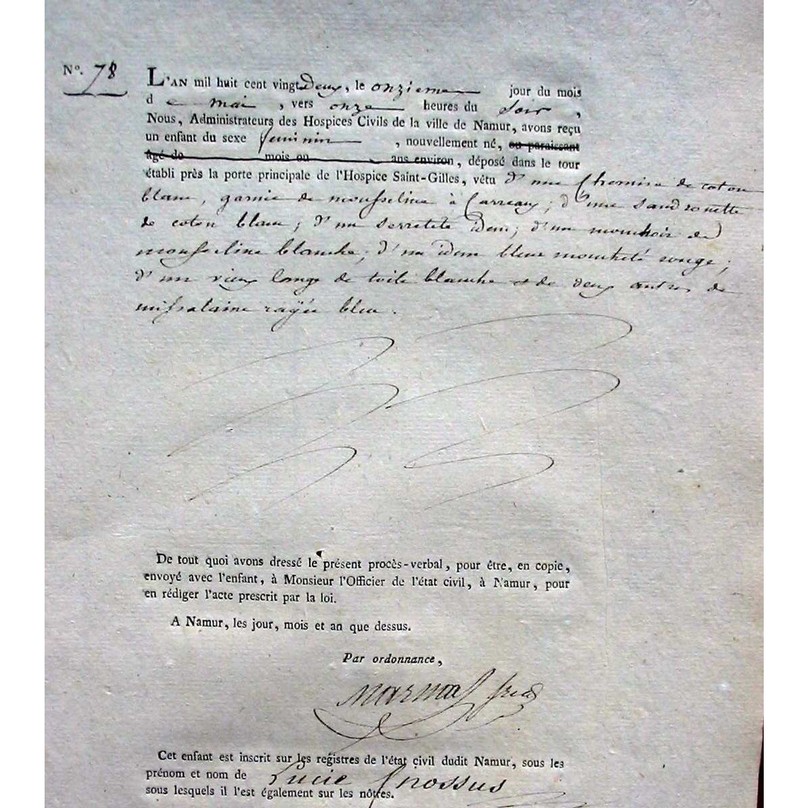 N°. 78
L'AN mil huit cent vingt Deux, le onzieme jour du mois
d e mai , vers onze heures du soir ,
Nous, Administrateurs des Hospices Civils de la ville de Namur, avons reçu
un enfant du sexe feminin , nouvellement né, ou paraissant
âgé de mois ou ans environ, déposé dans le tour
établi près la porte principale de l'Hospice Saint-Gilles, vêtu d'une Chemise de coton
blanc, garnie de mousseline à Carreaux; d'une
de coton blanc; d'un serretete idem; d'un mouchoir de
mousseline blanche; d'un idem bleu moucheté rouge;
d'un vieux lange de toile blanche et de deux autres de
rayée bleu.
De tout quoi avons dressé le présent procès-verbal, pour être, en copie,
envoyé avec l'enfant, à Monsieur l'Officier de l'état civil, à Namur, pour
en rédiger l'acte prescrit par la loi.
A Namur, les jour, mois et an que dessus.
Par ordonnance,
Cet enfant est inscrit sur les registres de l'état civil dudit Namur, sous les
prénom et nom de Lucie
sous lesquels il l'est également sur les nôtres.